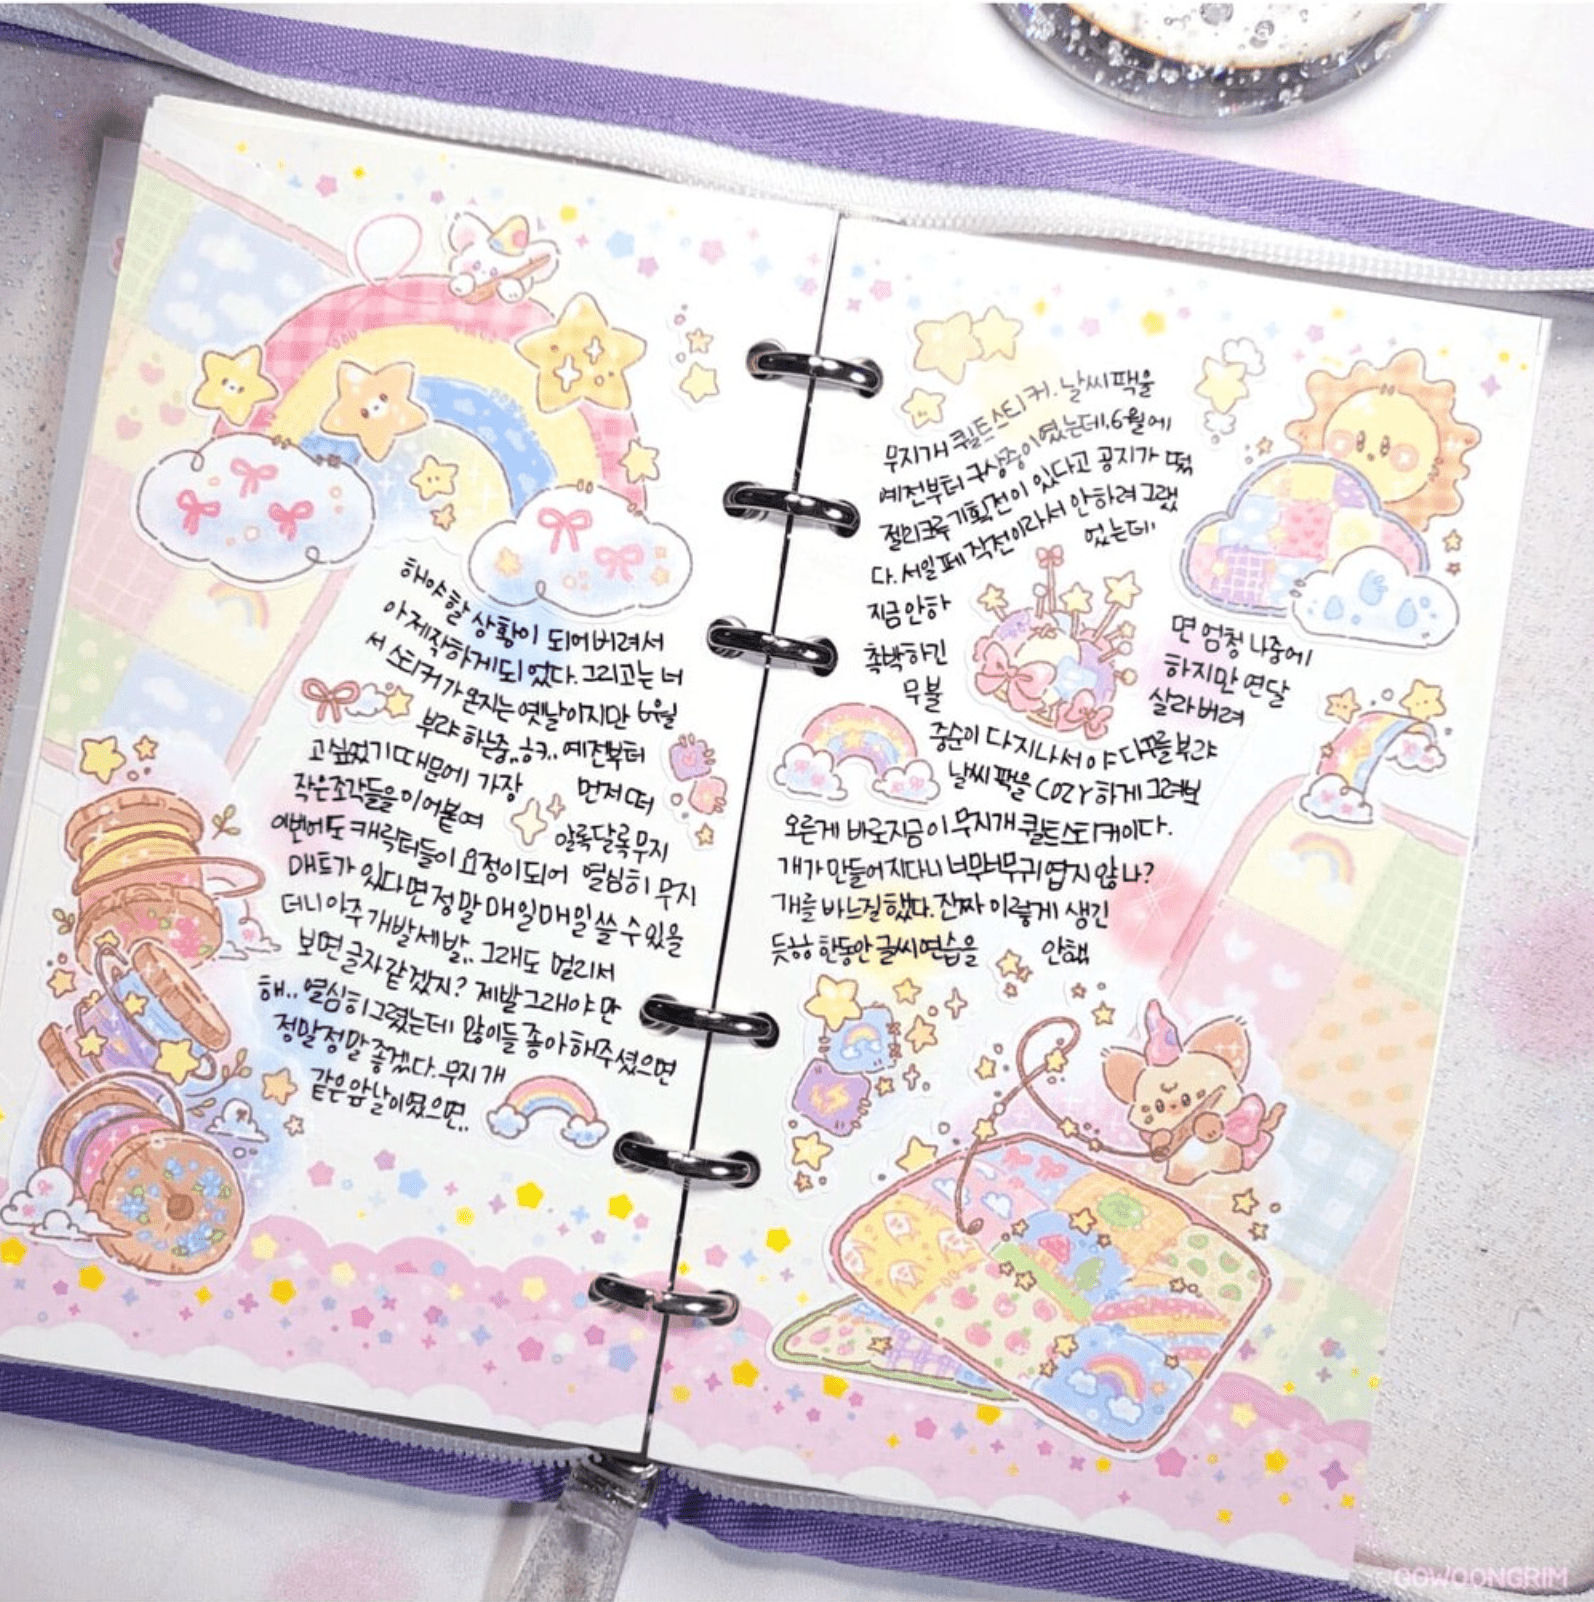 해야할 상황이 되어버려서
아 제작하게 되었다. 그리고는 너
서 스티커가 온지는 옛날이지만 6월
부랴 하는중,, ㅎㅋ.. 예전부터
고 싶었기 때문에 가장 먼저 떠
작은 조각들을 이어붙여 알록달록 무지
이번에도 캐릭터들이 요정이 되어 열심히 무지
매트가 있다면 정말 매일매일 쓸 수 있을
더니 아주 개발세발,, 그래도 멀리서
보면 글자 같겠지? 제발 그래야만
해.. 열심히 그렸는데 많이들 좋아해주셨으면
정말정말 좋겠다. 무지개
같은 앞날이었으면..
무지개 퀼트스티커. 날씨팩을
예전부터 구상중이였는데, 6월에
젤리크루 기획전이 있다고 공지가 떴
다. 서일페 직전이라서 안하려 그랬
었는데,
지금 안하면 엄청 나중에
촉박하긴 하지만 연달
무불 살라버려
중순이 다 지나서야 다꾸를 부랴
날씨팩을 COZY하게 그려보
오른게 바로 지금 이 무지개 퀼트스티커이다.
개가 만들어지다니 너무너무 귀엽지 않나?
개를 바느질했다. 진짜 이렇게 생긴
듯ㅎㅎ 한동안 글씨연습을 안했
GOWOONGRIM